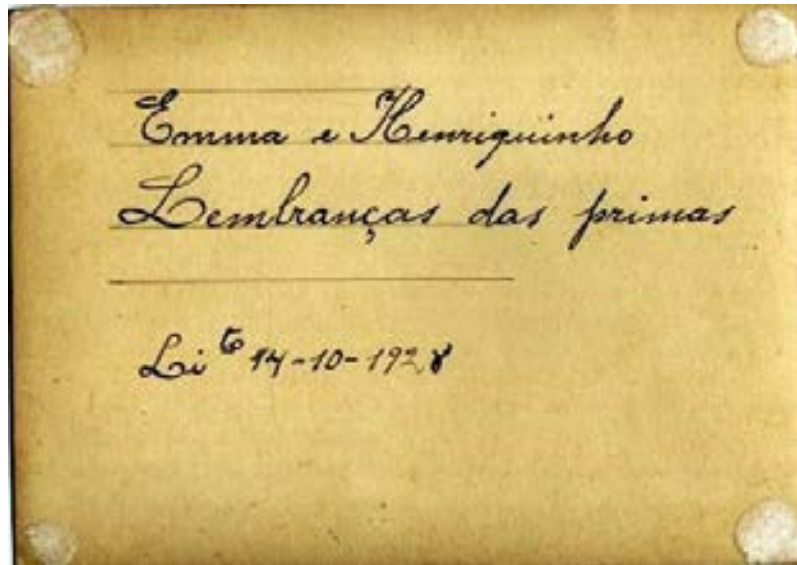 Emma e Henriquinho
Lembranças das primas
14-10-1928